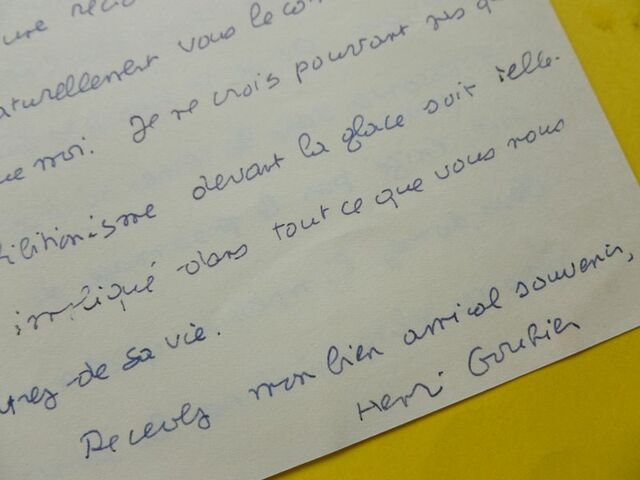 une
naturellement vous le
moi. Je ne crois pourtant pas
devant la glace soit telle.
impliqué dans tout ce que vous nous
de sa vie.
Recevez mon bien amical souvenir,
Henri Gouhier